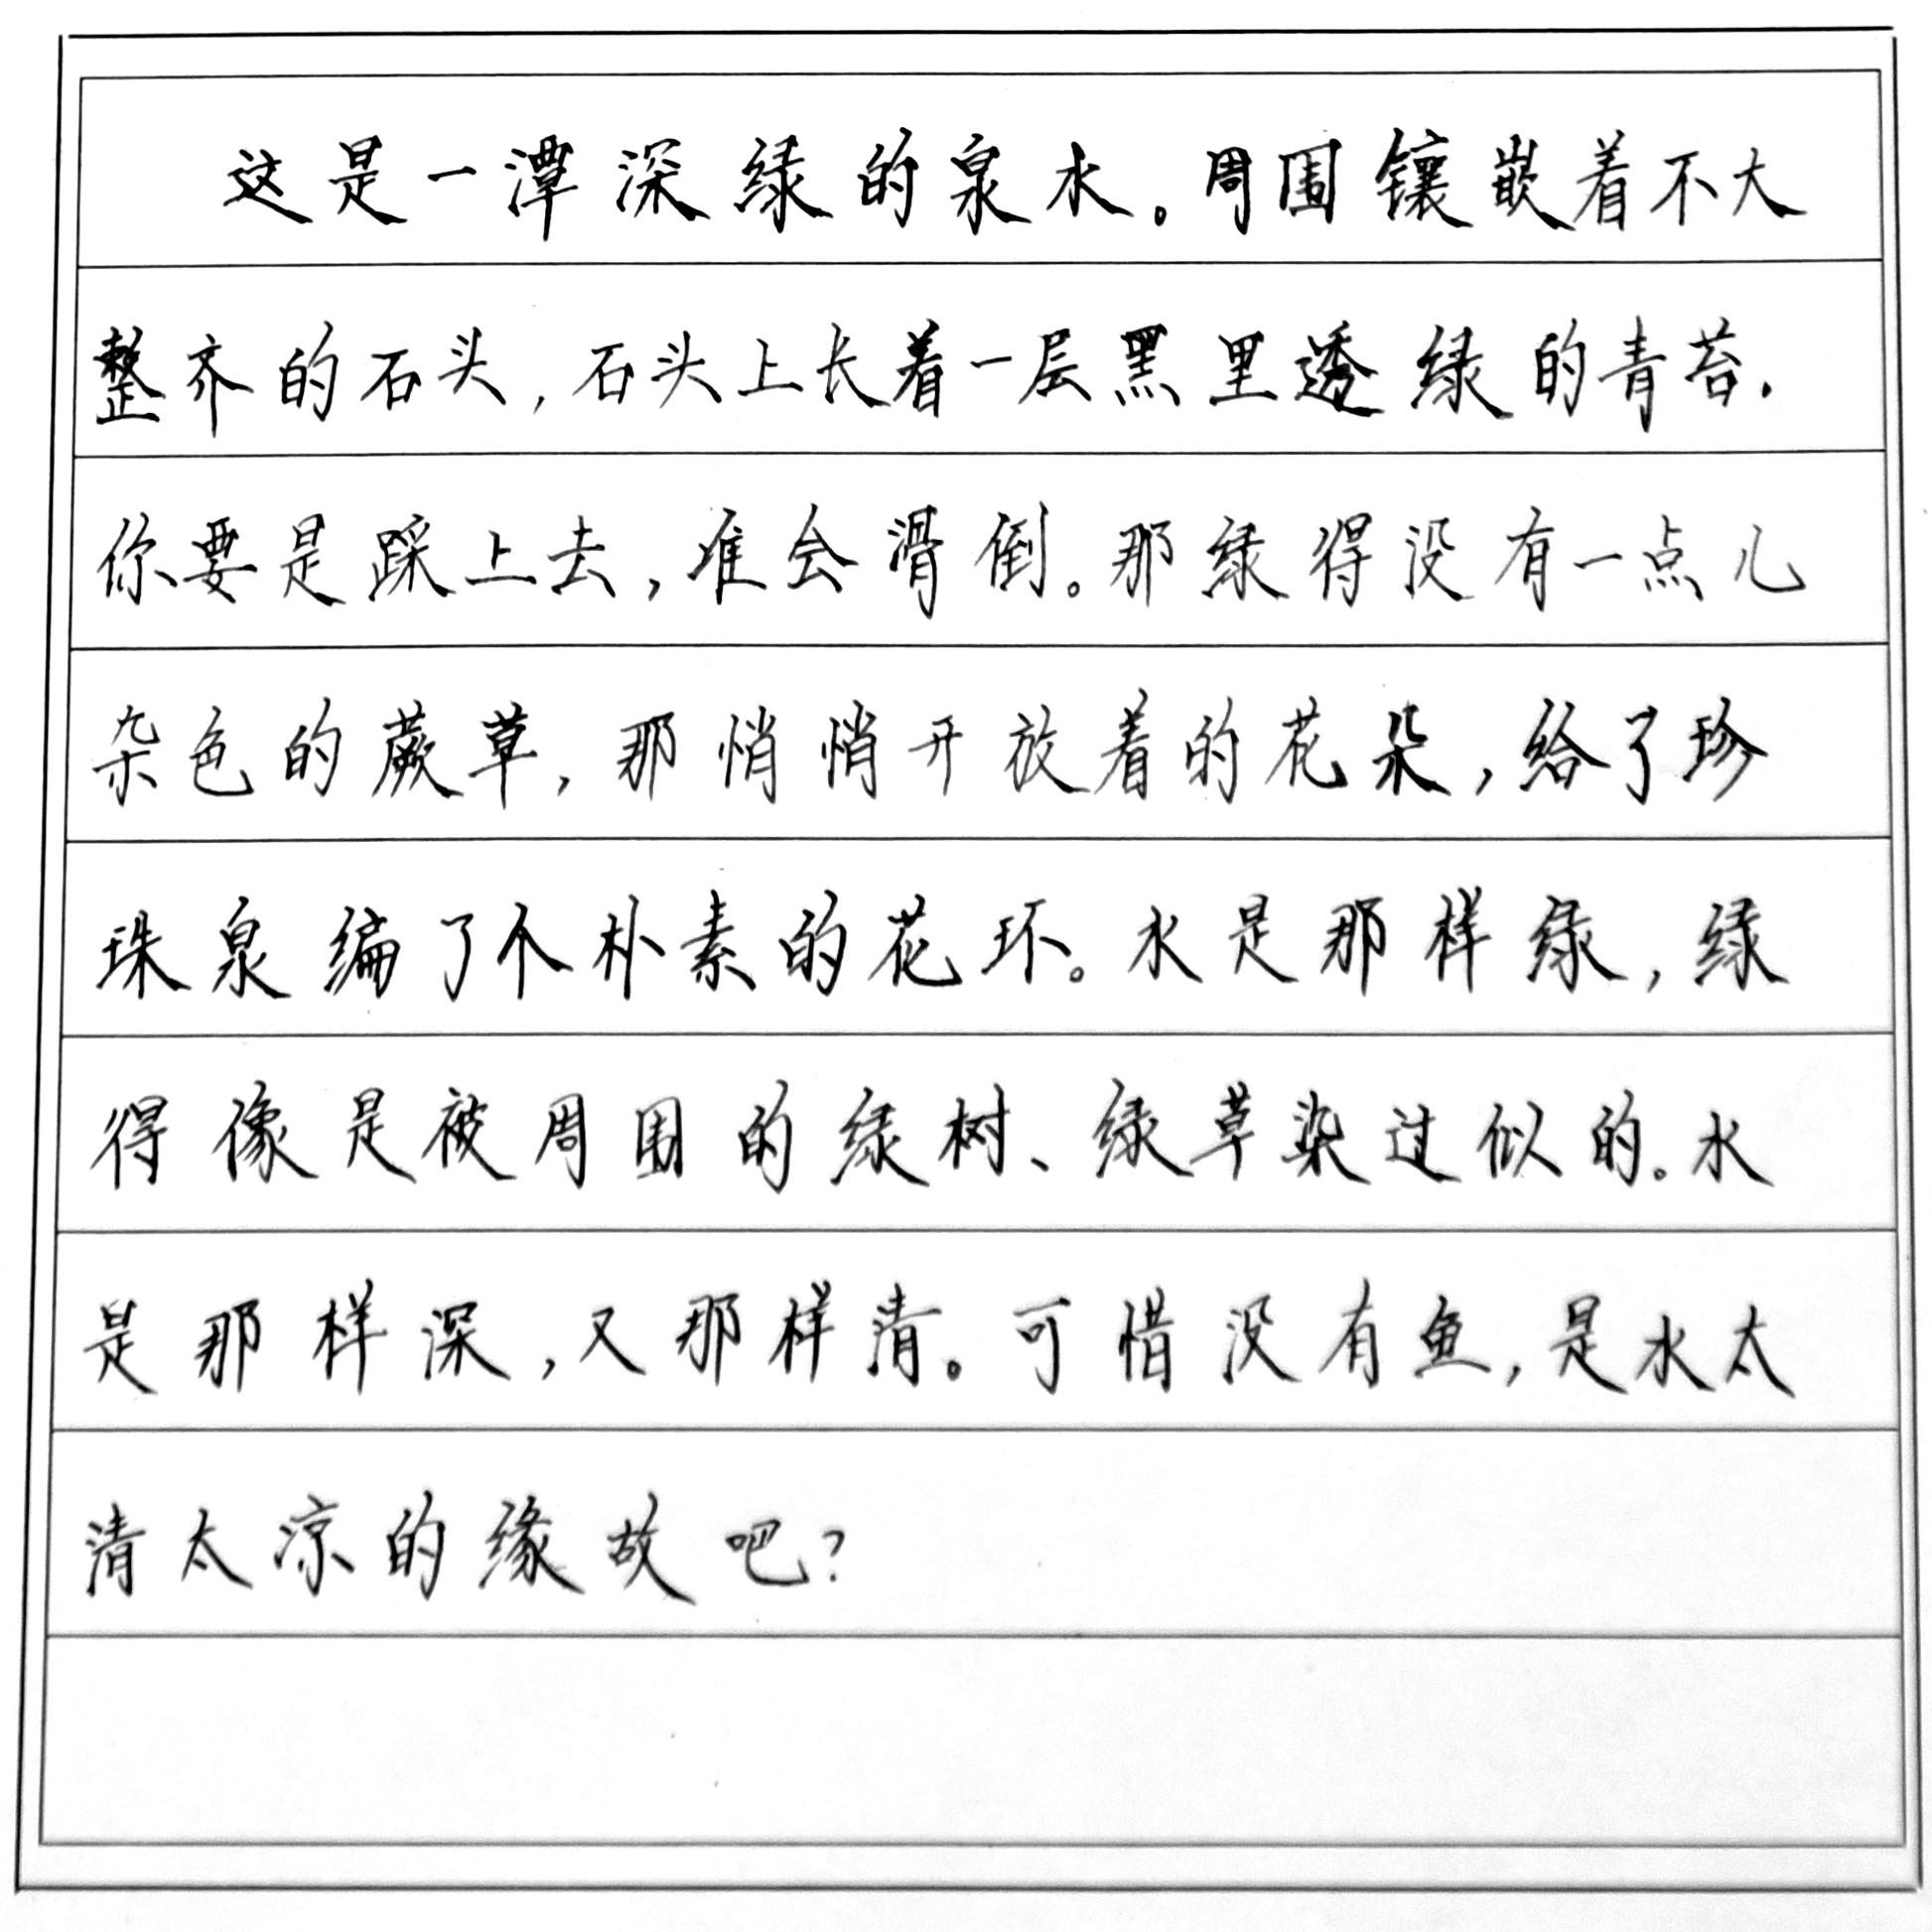 这是一潭深绿的泉水。周围镶嵌着不大
整齐的石头,石头上长着一层黑里透绿的青苔.
你要是踩上去,准会滑倒。那绿得没有一点儿
杂色的蕨草,那悄悄开放着的花朵,给了珍
珠泉编了个朴素的花环。水是那样绿,绿
得像是被周围的绿树、绿草染过似的。水
是那样深,又那样清。可惜没有鱼,是水太
清太凉的缘故吧?